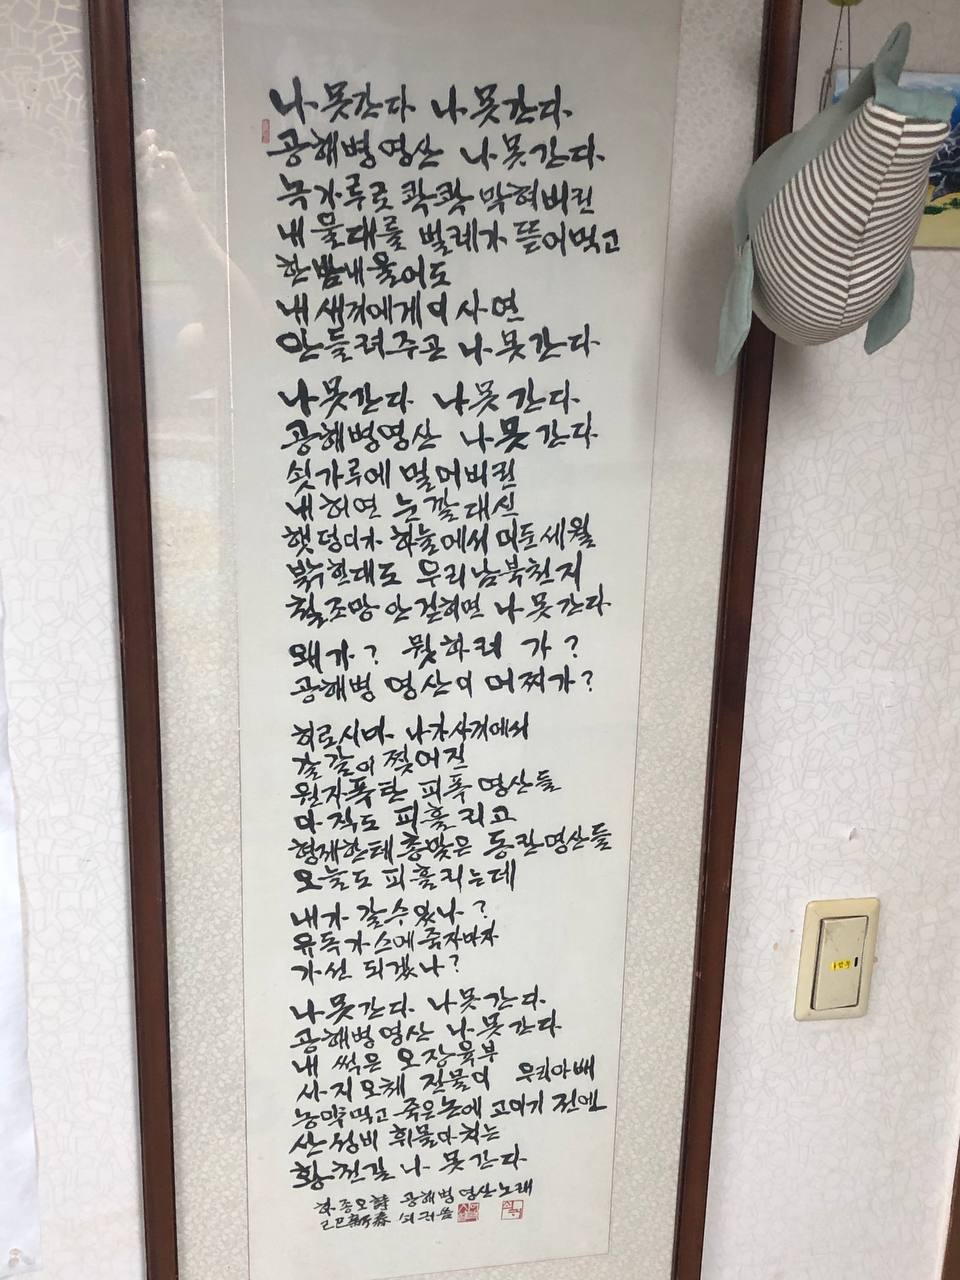 나 못간다 나 못간다
공해병 영산 나 못간다
녹가루로 콱콱 막혀버린
내 물대를 벌레가 뜯어먹고
한밤내 울어도
내 새끼에게 이 사연
안 들려주곤 나 못간다
나 못간다 나 못간다
공해병 영산 나 못간다
쇳가루에 멀어버린
내 허연 눈깔 대신
햇덩이가 하늘에서 머문 세월
밝혀한대도 우리 남북천지
철조망 안 걷히면 나 못간다
왜 가? 뭣하러 가?
공해병 영산이 어찌 가?
히로시마 나가사끼에서
갈갈이 찢어진
원자폭탄 피폭 영산들
아직도 피 흘리고
형제한테 총맞은 동란 영산들
오늘도 피 흘리는데
내가 갈 수 있나?
유독가스에 죽자마자
가선 되겠나?
나 못간다 나 못간다
공해병 영산 나 못간다
내 썩은 오장육부
사지오체 진물이 우리 아배
농약 먹고 죽은 논에 고이기 전엔
산성비 휘몰아치는
황천길 나 못간다
하종오 詩 공해병 영산노래
己巳 新春 쇠귀 씀